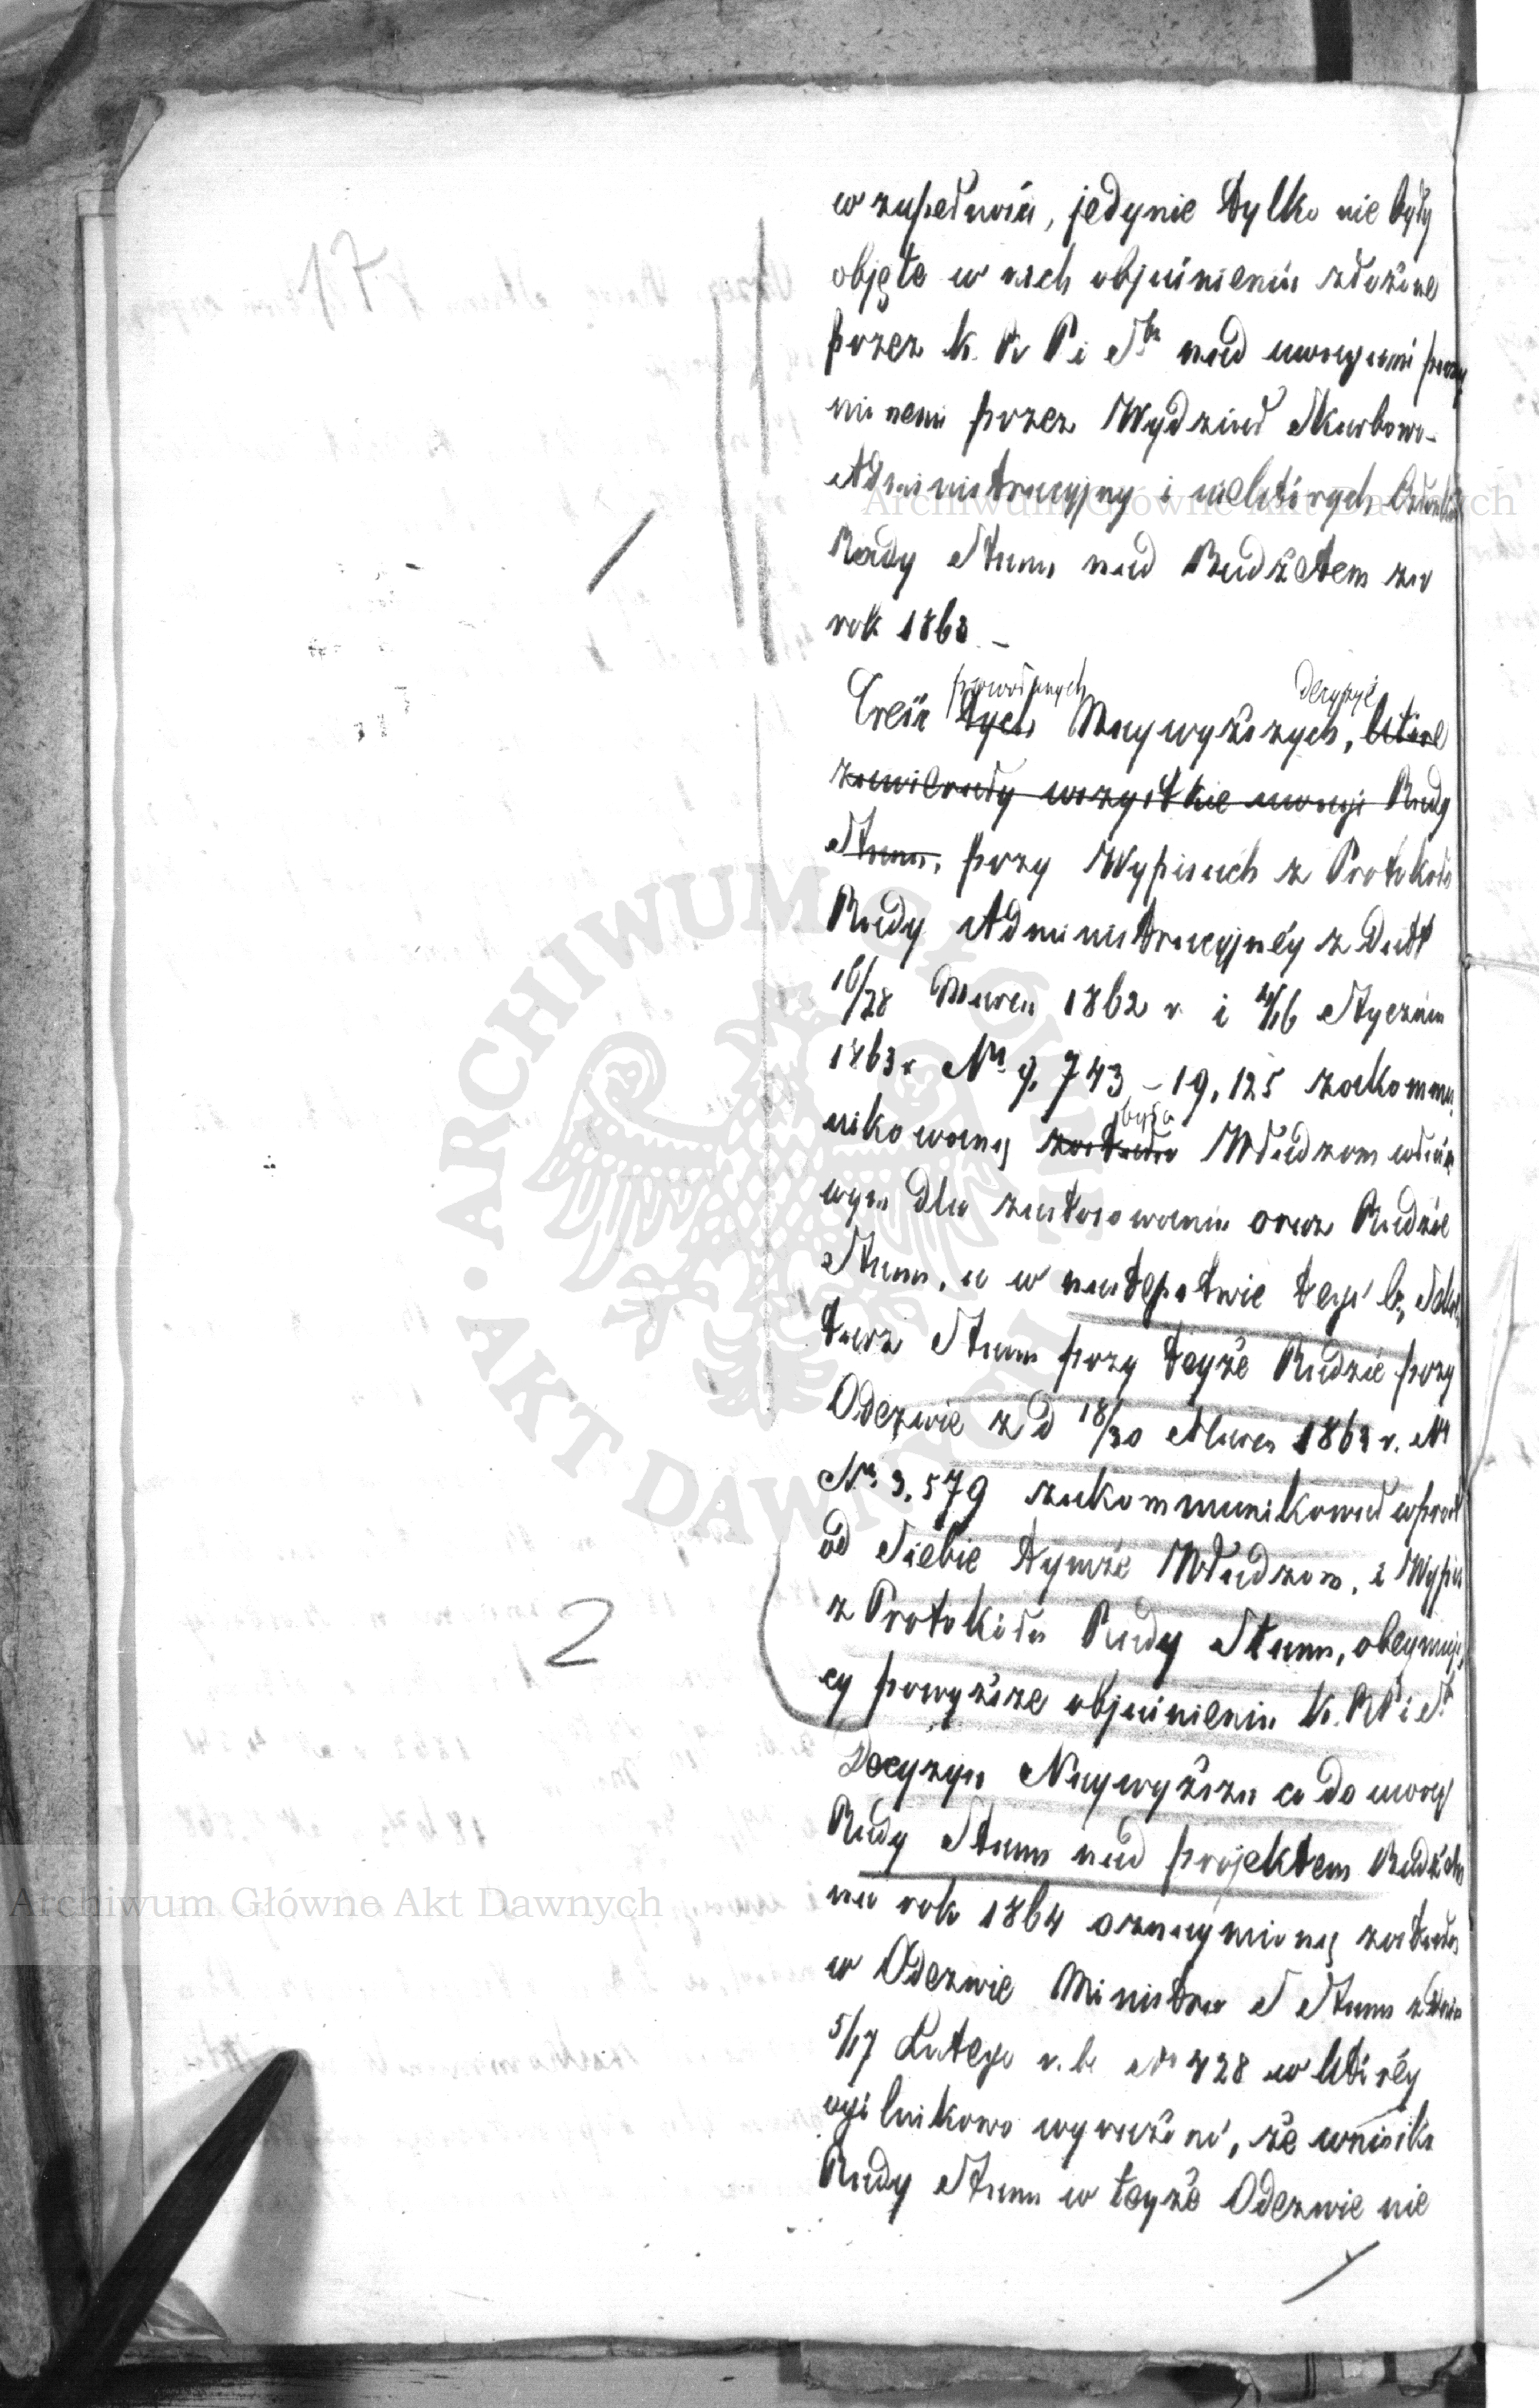 17
w zupełności, jedynie tylko nie były
objęte w nich objaśnienia złożone
przez K. R. P. i Sbu nad uwagami
przez Wydział Skarbowo-
Administracyjny i niektórych Członków
Rady Stanu nad Budżetem za
rok 1863 –
powołanych decyzyi
Treść tych Naywyższych, które
zawierały wszystkie uwagi Rady
Stanu, przy Wypisach z Protokołu
Rady Administracyjney z Datt
16/28 Marca 1862 r. i 4/16 Stycznia
1863 r. Nr 9,743 – 19,125 zakommu
była
nikowaną została Władzom właści
wym dla zastosowania oraz Radzie
Stanu, a w następstwie tego b. Sekre
tarz Stanu przy teyże Radzie przy
Odezwie z d 18/30 Marca 1863 r. Nr
Nr 3,579 zakommunikował wprost
od Siebie tymże Władzom, i Wypis
z Protokółu Rady Stanu, obeymują
cy powyższe objaśnienia K. R. P. i S.
Decyzya Naywyższa co do uwag
Rady Stanu nad projektem Budżetu
na rok 1864 oznaymioną została
w Odezwie Ministra S Stanu z dnia
5/17 Lutego r. b. No 428 w którey
ogólnikowo wyrażono, że wnioski
Rady Stanu w teyże Odezwie nie
2
Archiwum Główne Akt Dawnych
Archiwum Główne Akt Dawnych
ARCHIWUM GŁÓWNE AKT DAWNYCH